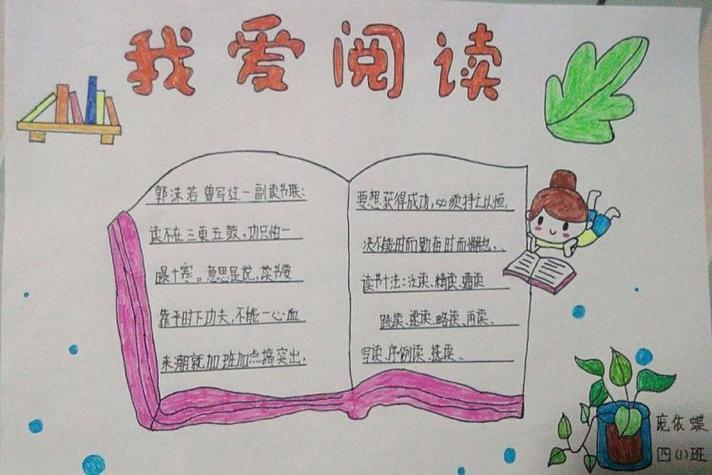 我爱阅读
郭沫若曾写过一副读书联:
读不在三更五鼓,功只怕一
曝十寒。意思是说,读书要
靠平时下功夫,不能一心血
来潮就加班加点搞突出,
要想获得成功,必须持之以恒,
决不能时而勤奋时而懒怠。
读书十法:泛读、精读、通读
跳读、速读、略读、再读、
写读、序例读、选读、
庞依蝶
四(1)班